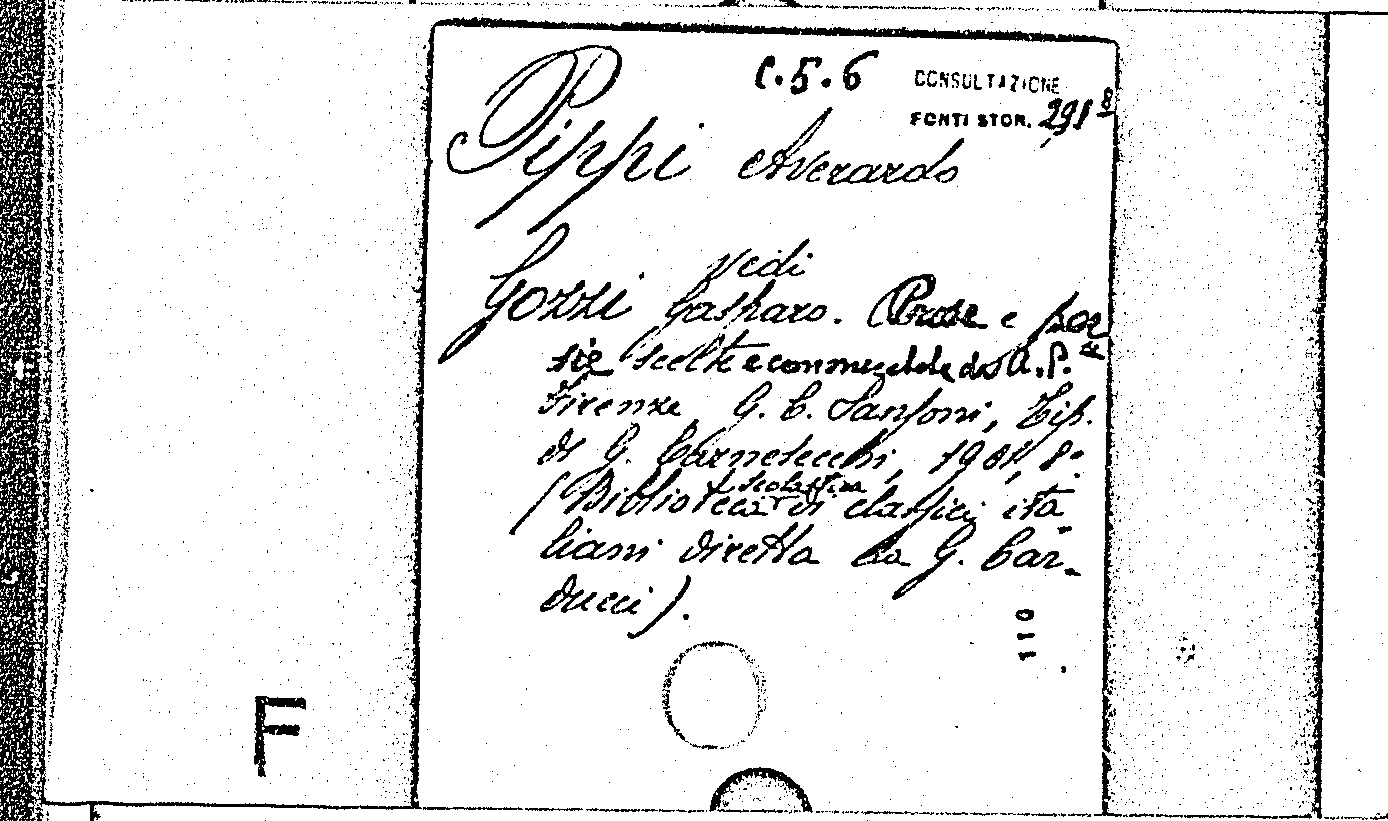 C.5.6 CONSULTAZIONE
FONTI STOR. 291 8
Pippi Averardo
Vedi
Gozzi Gasparo. Prose e poe
sie scelte e commentate da A. P.
Firenze G. C. Sansoni, Tip.
di G. Carnesecchi, 1901, 8°
(Biblioteca scolastica di classici ita
liani diretta da G. Car-
ducci).
110
F